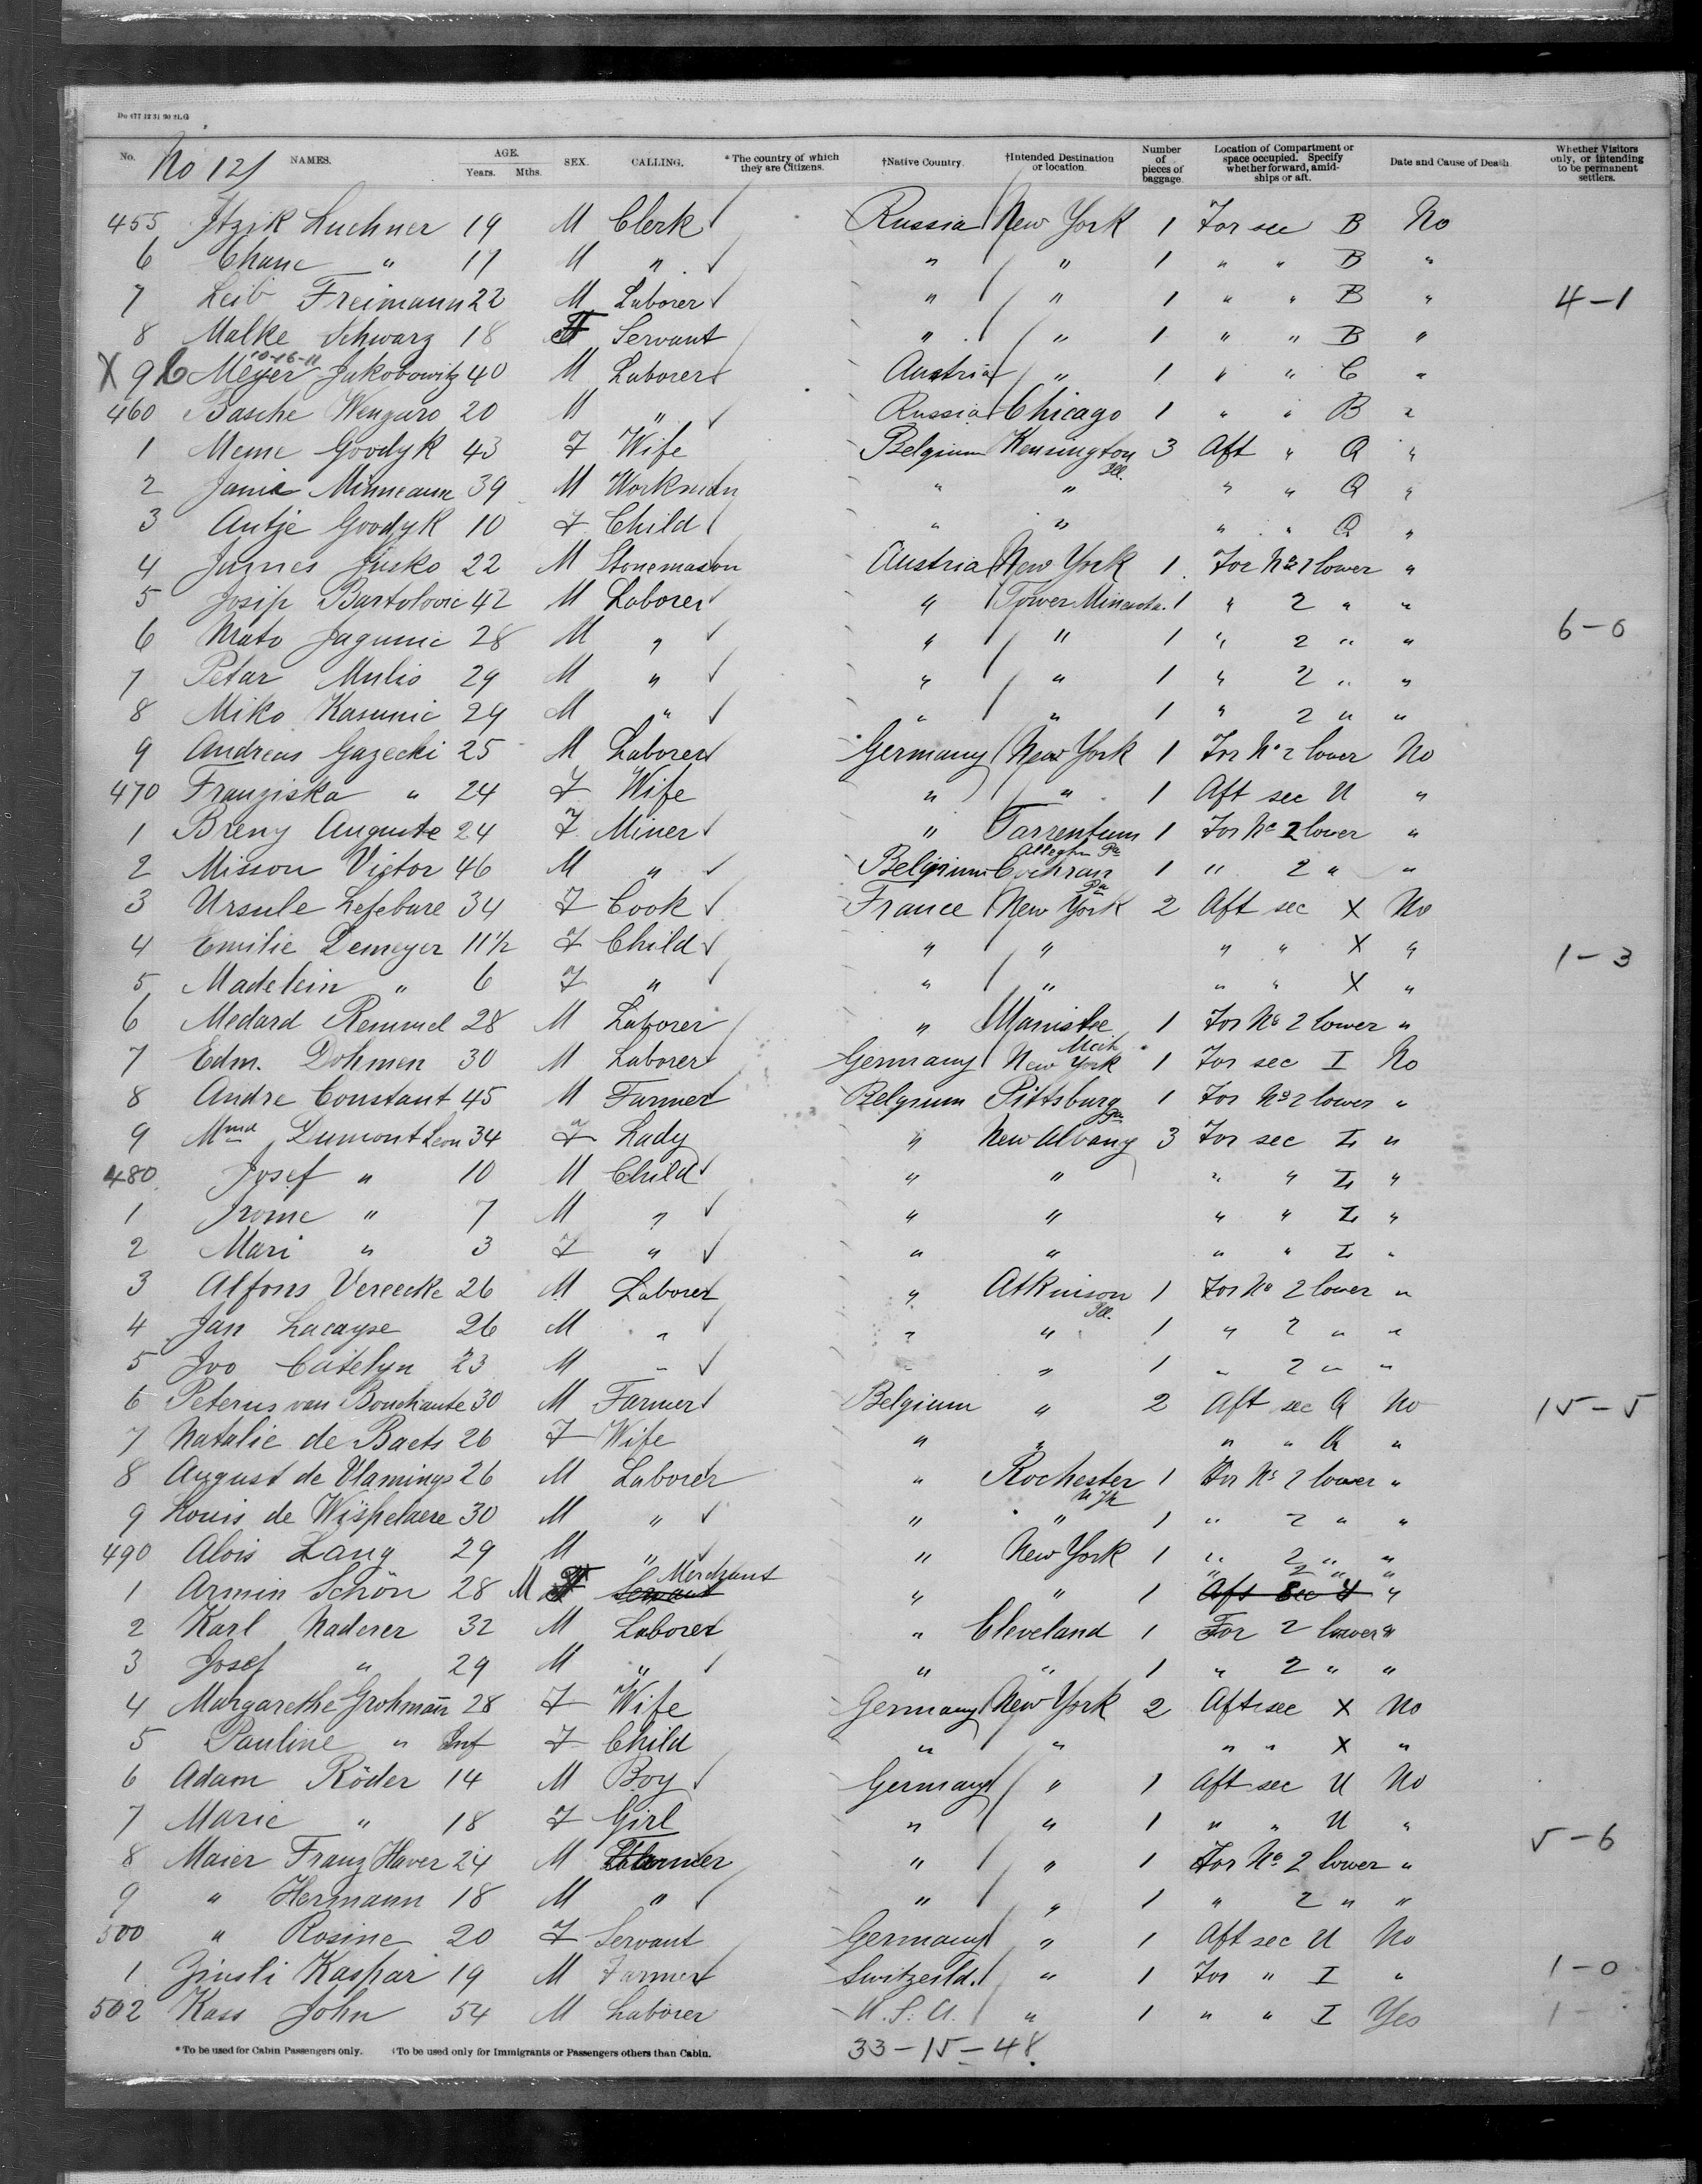 Do 477 12 31 90 21.G
No. NAMES. AGE. Years. Mths. SEX. CALLING. * The country of which they are Citizens. †Native Country. †Intended Destination or location. Number of pieces of baggage. Location of Compartment or space occupied. Specify whether forward, amidships or aft. Date and Cause of Death. Whether Visitors only, or intending to be permanent settlers.
No 121
455 Itzik Luchner 19 M Clerk Russia New York 1 For sec B No
6 Chane " 17 M " " " 1 " " B "
7 Leib Freimann 22 M Laborer " " 1 " " B " 4-1
8 Malke Schwarz 18 F Servant " " 1 " " B "
10-16-11
X 9 Meyer Jakobowitz 40 M Laborer Austria " 1 " " C "
460 Basche Wengaro 20 M " Russia Chicago 1 " " B "
1 Meme Goodyk 43 F Wife Belgium Kensington Ill. 3 Aft " Q "
2 Janie Minneaum 39 M Workman " " " " Q "
3 Antje Goodyk 10 F Child " " " " Q "
4 Jusko 22 M Stonemason Austria New York 1 For No 2 lower "
5 Josip Bartolovic 42 M Laborer " Tower Minesota. 1 " 2 " "
6 Mato Jagunic 28 M " " " 1 " 2 " " 6-0
7 Petar Mulio 29 M " " " 1 " 2 " "
8 Miko Kasunic 29 M " " " 1 " 2 " "
9 Andreas Gazecki 25 M Laborer Germany New York 1 For No 2 lower No
470 Franziska " 24 F Wife " " 1 Aft sec U "
1 Breny Auguste 24 F Miner " Tarrentum Allegh Pa 1 For No 2 lower "
2 Misson Victor 46 M " Belgium Cochran Pa 1 " 2 " "
3 Ursule Lefebure 34 F Cook France New York 2 Aft sec X No
4 Emilie Demeyer 11 1/2 F Child " " " " X " 1-3
5 Madelein " 6 F " " " " " X "
6 Medard Remmel 28 M Laborer " Manistee Mich 1 For No 2 lower "
7 Edm. Dohmen 30 M Laborer Germany New York 1 For sec I No
8 Andre Constant 45 M Farmer Belgium Pittsburg Pa 1 For No 2 lower "
9 Mmd Dumont Leon 34 F Lady " New Albany 3 For sec L "
480 Josef " 10 M Child " " " " L "
1 Jrome " 7 M " " " " " L "
2 Mari " 3 F " " " " " L "
3 Alfons Vereecke 26 M Laborer " Atkinson Ill. 1 For No 2 lower "
4 Jan Lacayse 26 M " " " 1 " 2 " "
5 Ivo Caitelyn 23 M " " " 1 " 2 " "
6 Peterus van Bouchaute 30 M Farmer Belgium " 2 Aft sec Q No 15-5
7 Natalie de Baets 26 F Wife " " " " Q "
8 August de Vlamings 26 M Laborer " Rochester N Yk 1 For No 2 lower "
9 Louis de Wispelaere 30 M " " " 1 " 2 " "
490 Alois Lang 29 M " " New York 1 " 2 " "
1 Armin Schön 28 M F Servant Merchant " " 1 Aft Sec U " 2 " " "
2 Karl Naderer 32 M Laborer " Cleveland 1 For 2 lower "
3 Josef " 29 M " " " 1 " 2 " "
4 Margarethe Grohmann 28 F Wife Germany New York 2 Aft sec X No
5 Pauline " Inf F Child " " " " X "
6 Adam Röder 14 M Boy Germany " 1 Aft sec U No
7 Marie " 18 F Girl " " 1 " " U " 5-6
8 Maier Franz Haver 24 M Farmer " " 1 For No 2 lower "
9 " Hermann 18 M " " " 1 " 2 " "
500 " Rosine 20 F Servant Germany " 1 Aft sec U No
1 Zinsli Kaspar 19 M Farmer Switzerld. " 1 For " I " 1-0
502 Kass John 54 M Laborer U.S.A. " 1 " " I Yes 1-
* To be used for Cabin Passengers only. †To be used only for Immigrants or Passengers others than Cabin. 33-15-48.